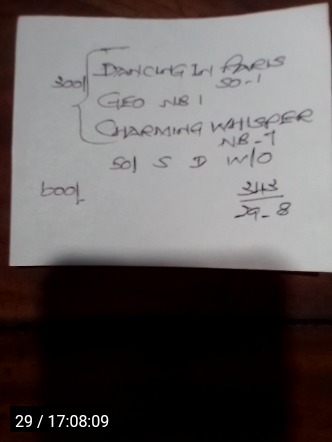 300/ DANCING IN PARIS
50-1
GEO NB 1
CHARMING WHISPER
NB-7
50/ S D W/O
600/. 343
29-8
29 / 17:08:09